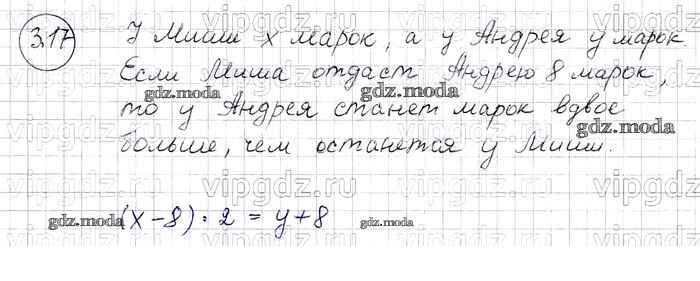 3.17
У Миши x марок, а у Андрея y марок.
Если Миша отдаст Андрею 8 марок,
то у Андрея станет марок вдвое
больше, чем останется у Миши.
(x-8)·2 = y+8
vipgdz.ru
gdz.moda